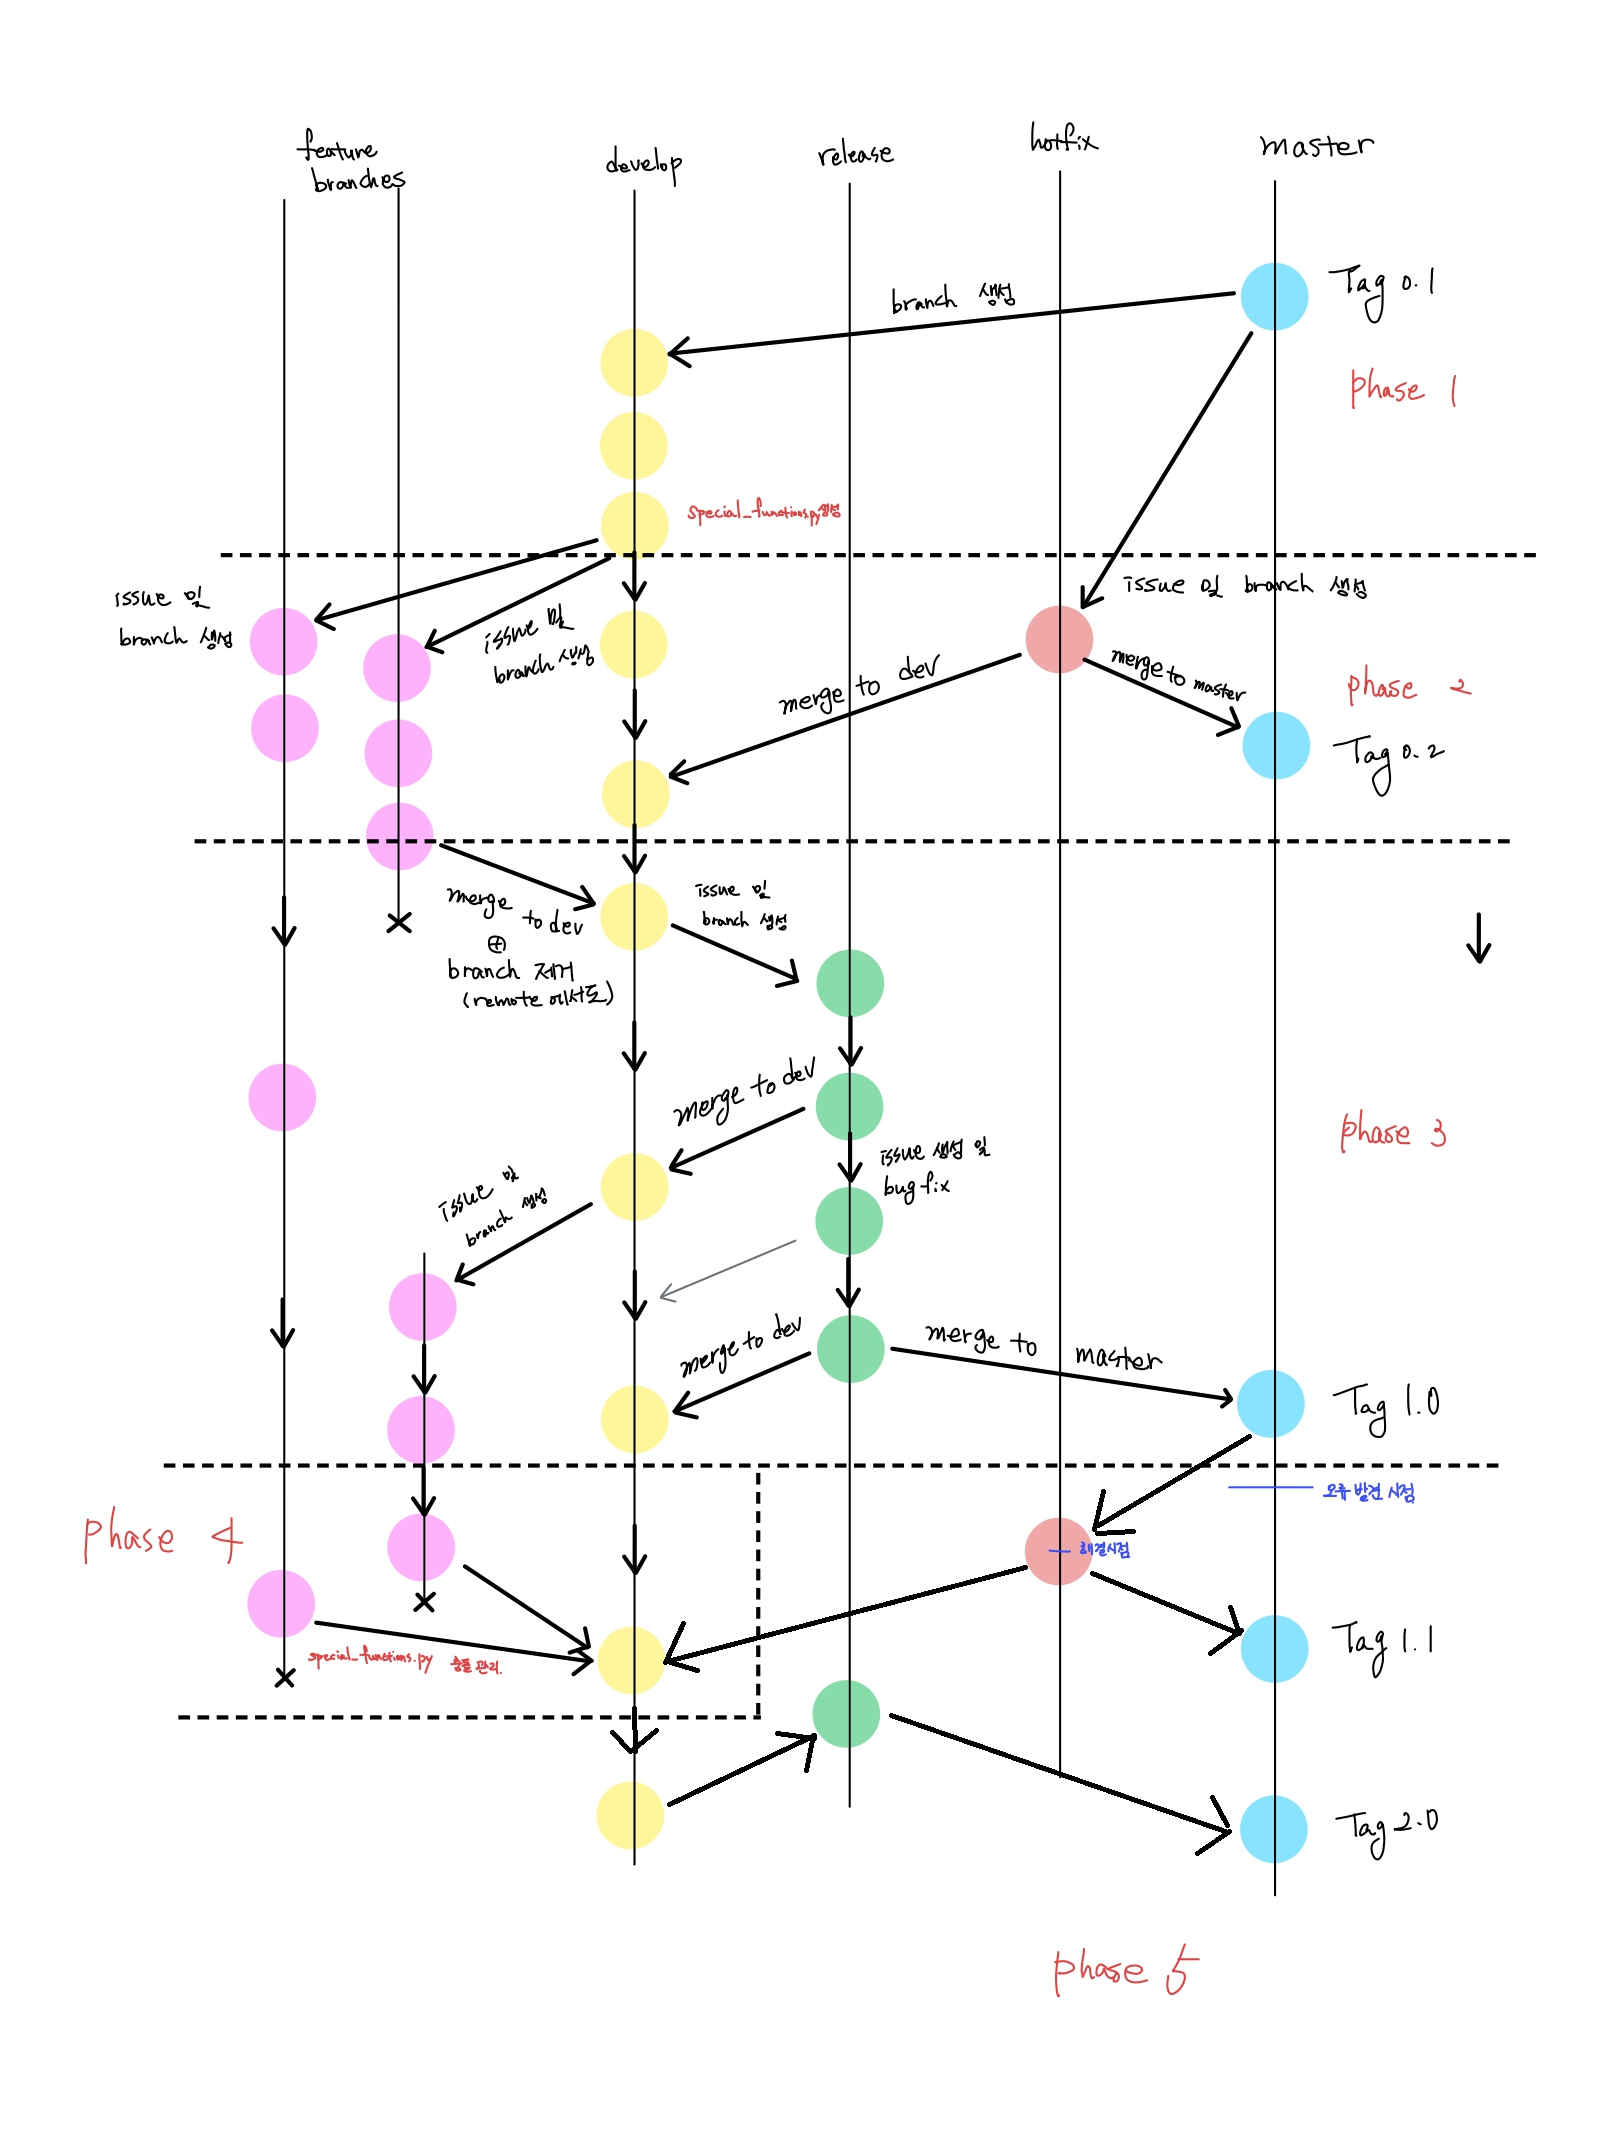 feature
branches
develop
release
hotfix
master
branch 생성
Tag 0.1
phase 1
special_functions.py 생성
issue 및
branch 생성
issue 및
branch 생성
issue 및 branch 생성
merge to dev
merge to master
phase 2
Tag 0.2
merge
to dev
⊕
branch 제거
(remote 에서도)
issue 및
branch 생성
merge to dev
phase 3
issue 생성 및
bugfix
issue 및
branch 생성
merge to dev
merge to master
Tag 1.0
오류 발견 시점
phase 4
해결시점
special_functions.py 충돌 관리.
Tag 1.1
Tag 2.0
phase 5